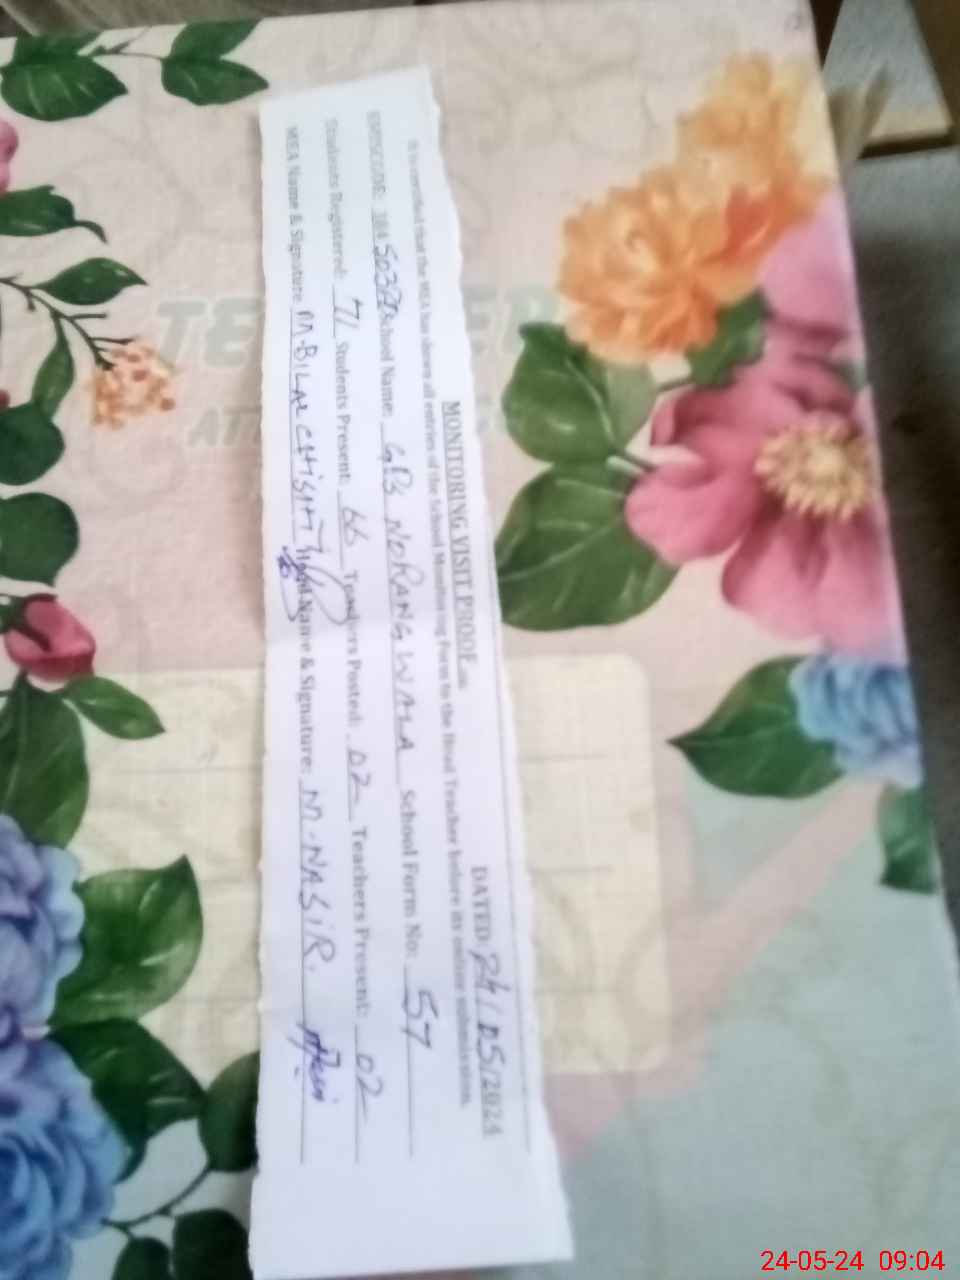 MONITORING VISIT PROOF
DATED: 24/05/2024
It is certified that the MEA has shown all entries of the School Monitoring Form to the Head Teacher before its online submission.
EMISCODE: School Name: GPS NORANGWALA School Form No: 57
Students Registered: 71 Students Present: 66 Teachers Posted: 02 Teachers Present: 02
MEA Name & Signature M.BILAL CHISHTI Head Name & Signature: M.NASIR.
TE
AT
24-05-24 09:04